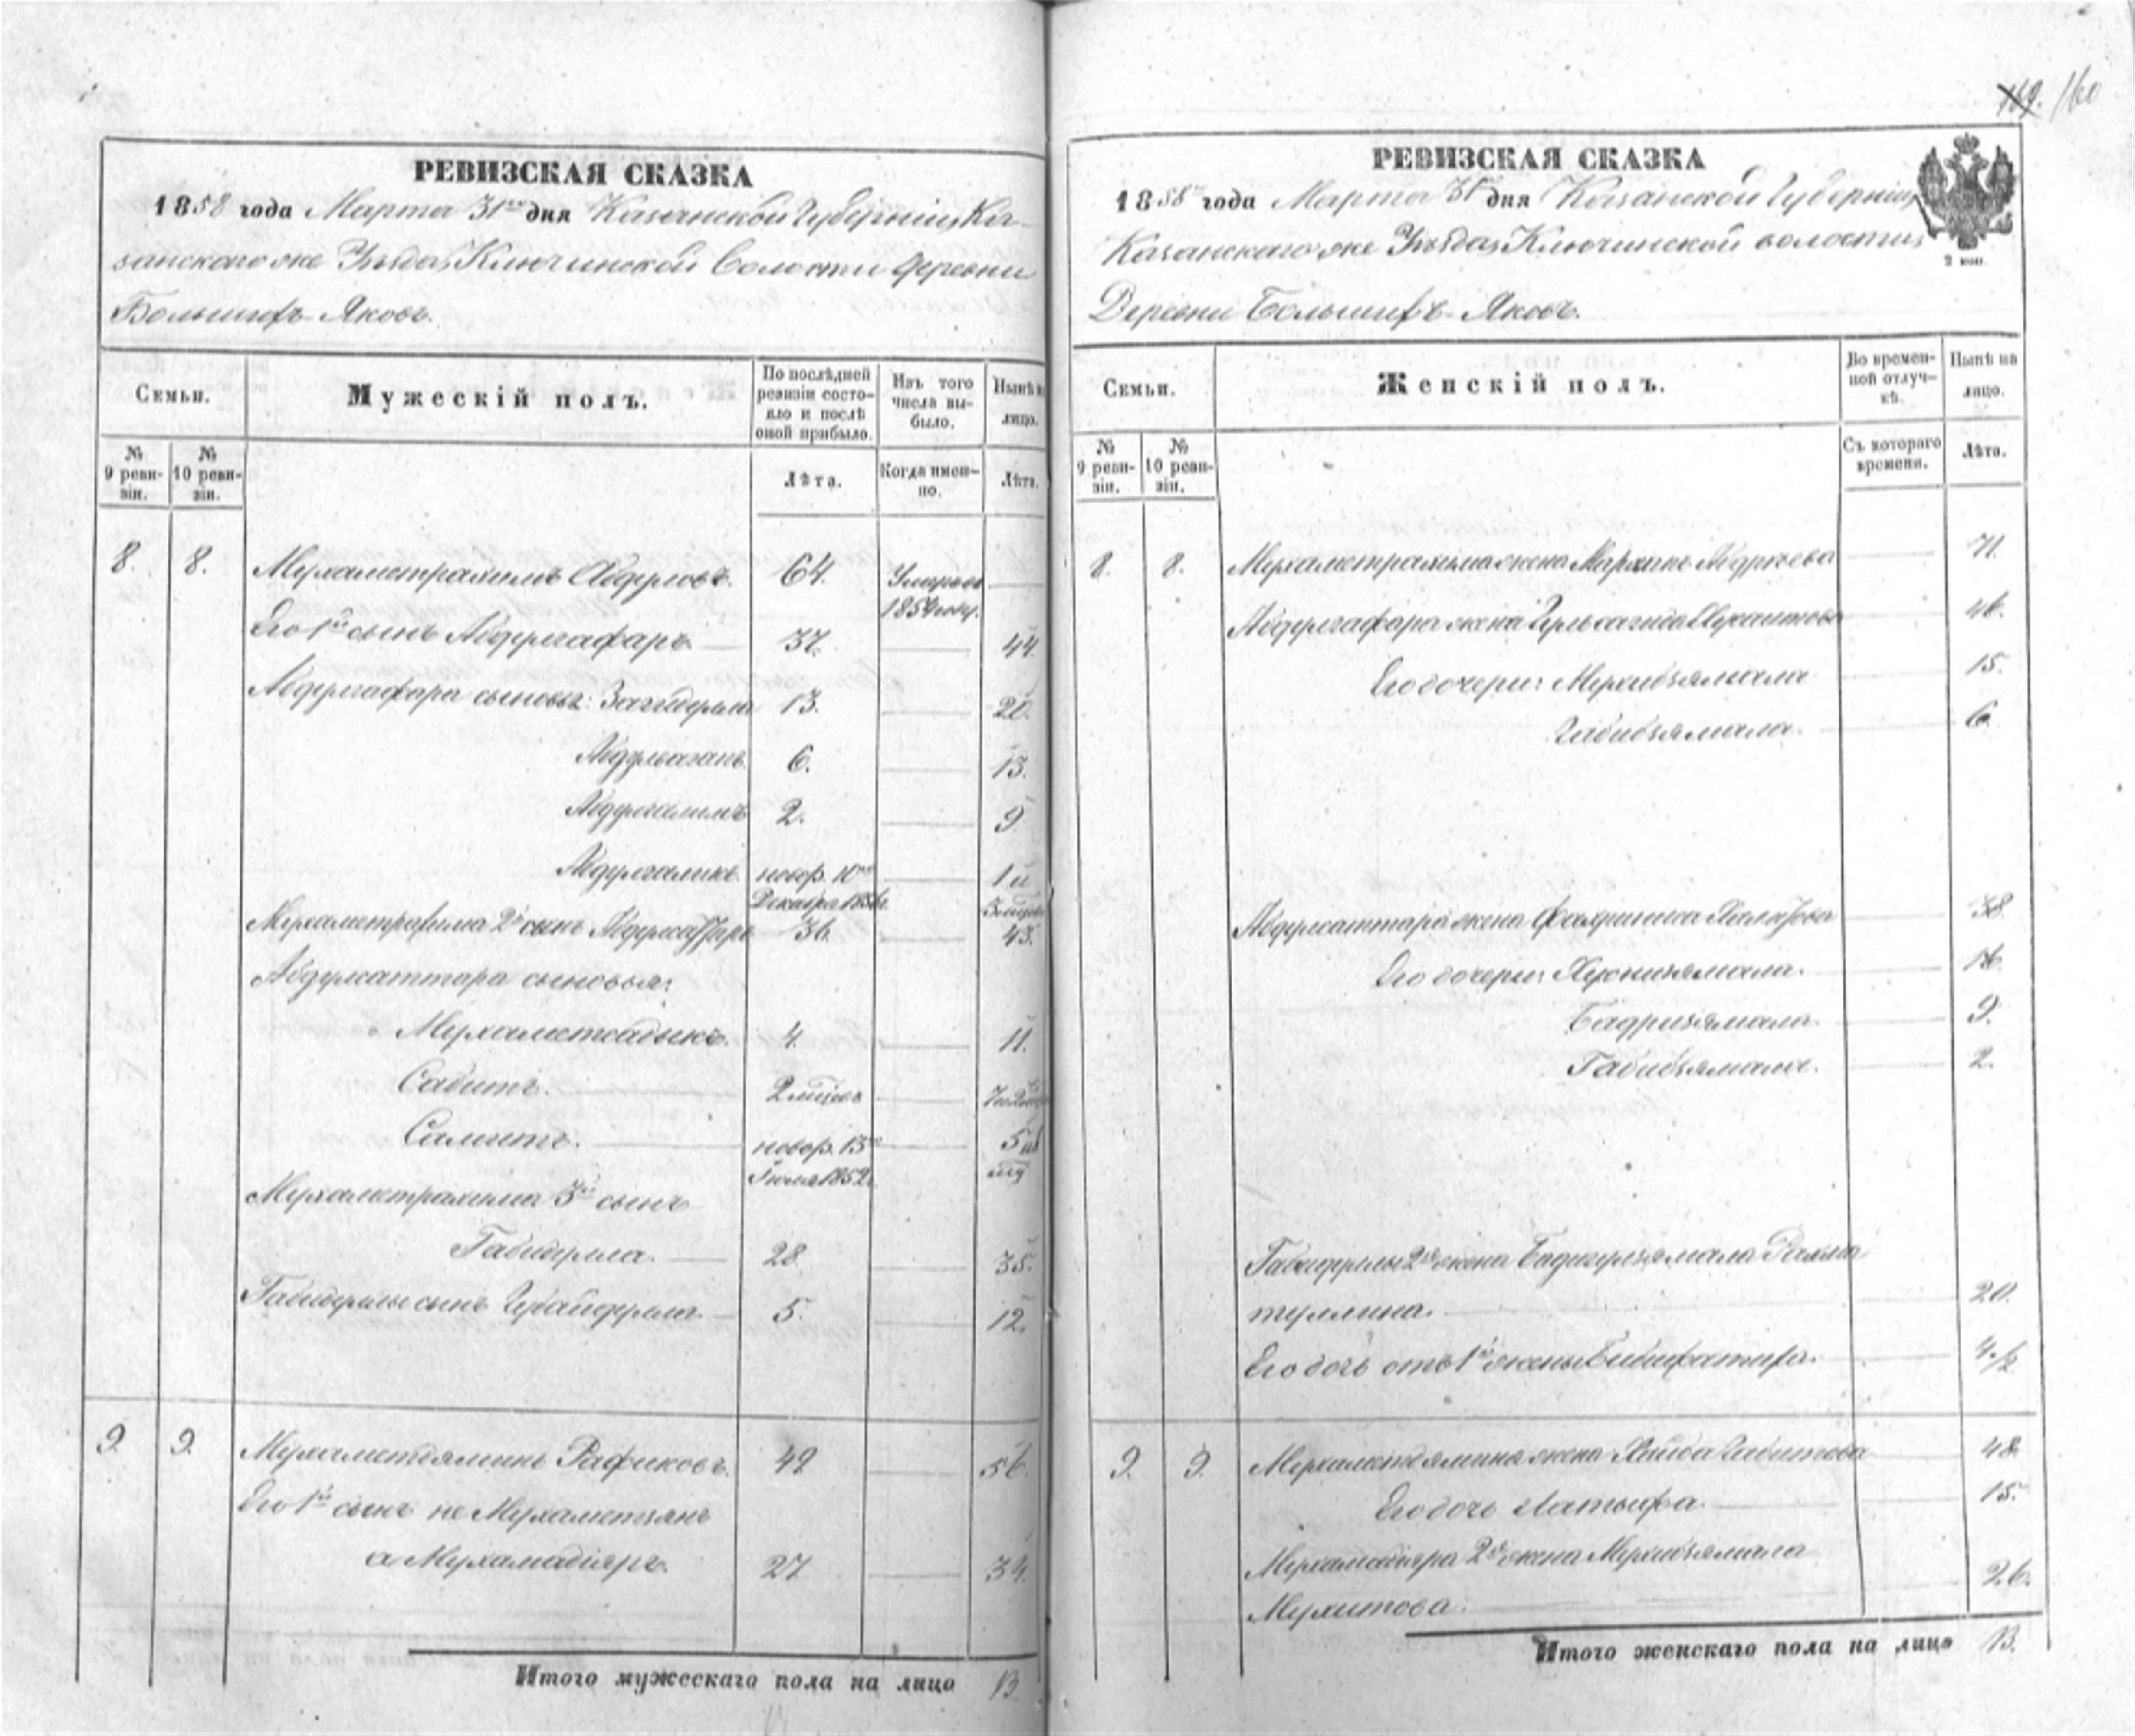 РЕВИЗСКАЯ СКАЗКА
1858 года Марта 31го дня Казанской Губерніи, Ка-
занскаго же Уѣзда, Ключинской Волости деревни
Большихъ Яковъ.
Семьи. Мужескій полъ. По послѣдней ревизіи состо-яло и послѣ оной прибыло. Изъ того числа вы-было. Нынѣ на лицо.
№ 9 реви-зіи. № 10 реви-зіи. Лѣта. Когда имен-но. Лѣта.
8. 8. Мухаметрахимъ Абдуловъ. 64. Умеръ въ
1854 году.
Его 1й сынъ Абдулгафаръ 37. 44.
Абдулгафара сыновья: Загидулла 13. 20.
Абдулваганъ 6. 13.
Абдулгалимъ 2. 9
Абдулгаликъ новор. 10го 1 и
Декабря 1856г. 3 мѣсяц.
Мухаметрахима 2й сынъ Абдулсаттаръ 36. 43.
Абдулсаттара сыновья:
Мухаметсадыкъ. 4. 11.
Сабитъ. 2 мѣсяц.
Самитъ. новор. 13го 5 и 8
Іюля 1852г. мѣ
Мухаметрахима 3й сынъ
Габидулла. 28. 35.
Габидуллы сынъ Губайдулла 5. 12.
9. 9. Мухаметзяминъ Рафиковъ. 49 56.
Его 1й сынъ не Мухаметзянъ
а Мухамадіяръ. 27. 34.
Итого мужескаго пола на лицо 13.
159. 160
РЕВИЗСКАЯ СКАЗКА
1858 года Марта 31 дня Казанской Губерніи,
Казанскаго же Уѣзда, Ключинской волости,
Деревни Большихъ Яковъ.
2 коп.
Семьи. Женскій полъ. Во времен-ной отлуч-кѣ. Нынѣ на лицо.
№ 9 реви-зіи. № 10 реви-зіи. Съ котораго времени. Лѣта.
8. 8. Мухаметрахима жена 71.
Абдулгафара жена 46.
Его дочери: Мухибзямала 15.
Габибзямала. 6.
Абдулсаттара жена Фахриниса 38.
Его дочери: Хуснизямала. 16.
Бадризямала. 9.
Габибзямала. 2.
Габидуллы 2я жена Бадигулзямала Рахма
туллина. 20.
Его дочь отъ 1й жены Бибифатиха. 4½
9. 9. Мухаметзямина жена Габитова 48.
Его дочь Латыфа 15.
Мухамадіяра 2я жена Мухибзямала
Мухитова. 26.
Итого женскаго пола на лицо 13.